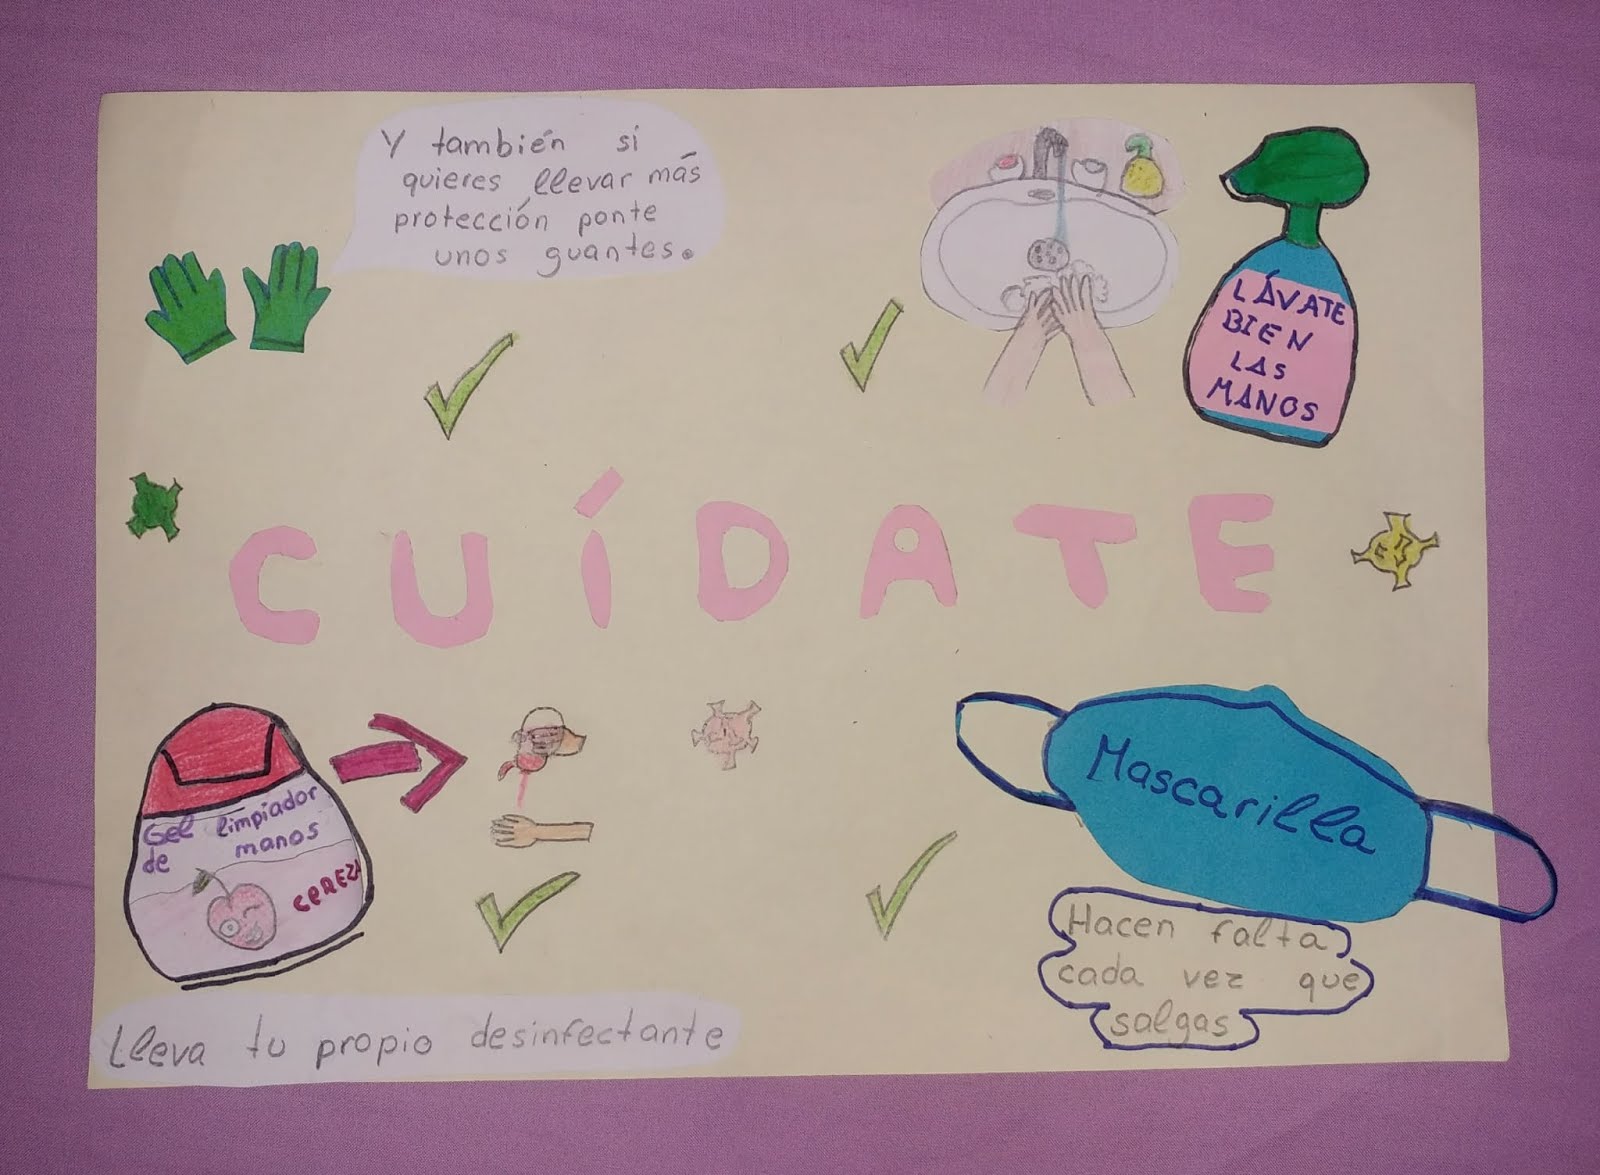 Y también si
quieres llevar más
protección ponte
unos guantes.
LÁVATE
BIEN
LAS
MANOS
CUÍDATE
Gel limpiador
de manos
CEREZA
Mascarilla
Hacen falta
cada vez que
salgas
Lleva tu propio desinfectante